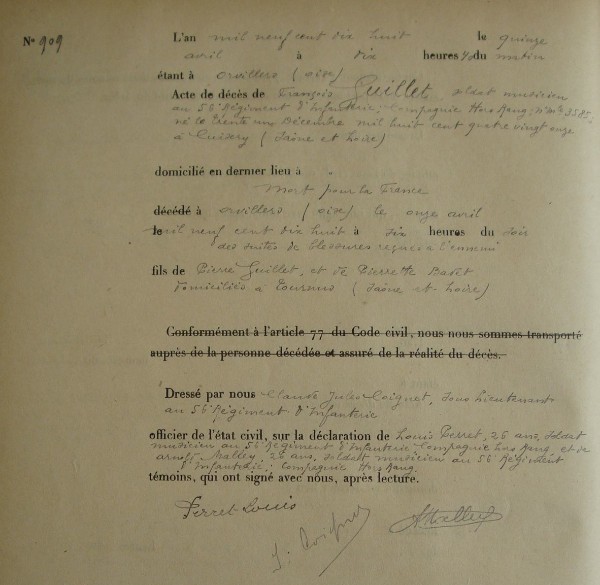 N° 909
L'an mil neuf cent dix huit le quinze
avril à dix heures du matin
étant à orvillers (oise)
Acte de décès de François Guillet, soldat musicien
au 56e Régiment d'Infanterie, Compagnie Hors Rang, n° mle 3585
né le trente un Décembre mil huit cent quatre vingt onze
à Cuisery (Saône et Loire)
domicilié en dernier lieu à
Mort pour la France
décédé à orvillers (oise) le onze avril
le mil neuf cent dix huit à six heures du soir
des suites de blessures reçues à l'ennemi
fils de Pierre Guillet, et de Pierrette Badet
domiciliés à Tournus (Saône et Loire)
Conformément à l'article 77 du Code civil, nous nous sommes transporté
auprès de la personne décédée et assuré de la réalité du décès.
Dressé par nous Claude Jules Coignet, Sous Lieutenant
au 56e Régiment d'Infanterie
officier de l'état civil, sur la déclaration de Louis Perret, 26 ans, soldat
musicien au 56e Régiment d'Infanterie Compagnie Hors Rang, et de
Malley, 26 ans, soldat musicien au 56e Régiment
d'Infanterie, Compagnie Hors Rang.
témoins, qui ont signé avec nous, après lecture.
Perret Louis
J. Coignet
Malley